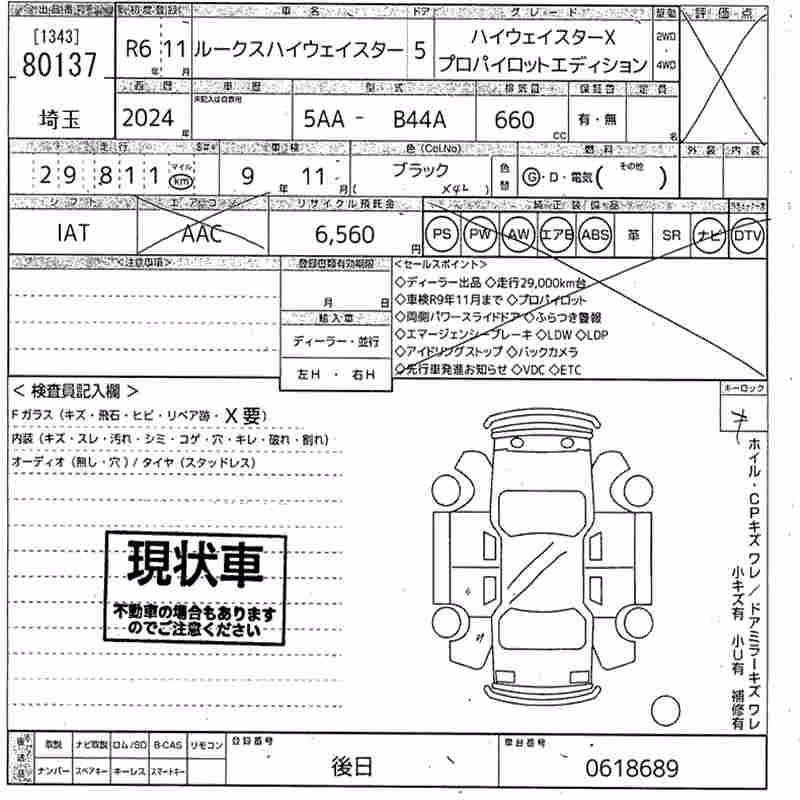 出品番号 初度登録 車名 ドア グレード 駆動 評価点
[1343]
80137
R6 11 ルークスハイウェイスター 5 ハイウェイスターX
プロパイロットエディション
2WD
・
4WD
年 月
埼玉
西暦 車歴 型式 排気量 保証書 定員
未記入は自家用
2024 年 5AA - B44A 660 CC 有・無 名
走行 車検 色(Col.No) 燃料 外装 内装
29811 マイル km 9 年 11 月 ブラック
( X42 )
色替
G・D・電気( その他 )
シフト エアコン リサイクル預託金 純正装備品
IAT AAC 6,560 円 PS PW AW エアB ABS 革 SR ナビ DTV
<注意事項> 登録書類有効期限
月 日
輸入車
ディーラー・並行
左H・右H
<セールスポイント>
◇ディーラー出品 ◇走行29,000km台
◇車検R9年11月まで ◇プロパイロット
◇両側パワースライドドア ◇ふらつき警報
◇エマージェンシーブレーキ ◇LDW ◇LDP
◇アイドリングストップ ◇バックカメラ
◇先行車発進お知らせ ◇VDC ◇ETC
キーロック
< 検査員記入欄 >
Fガラス(キズ・飛石・ヒビ・リペア跡・X要)
内装(キズ・スレ・汚れ・シミ・コゲ・穴・キレ・破れ・割れ)
オーディオ(無し・穴)/タイヤ(スタッドレス)
現状車
不動車の場合もあります
のでご注意ください
ホイル・CPキズ ワレ / ドアミラーキズ ワレ
小キズ有 小U有 補修有
後送品 取説 ナビ取説 ロム/SD B-CAS リモコン
ナンバー スペアキー キーレス スマートキー
登録番号 後日
車台番号 0618689